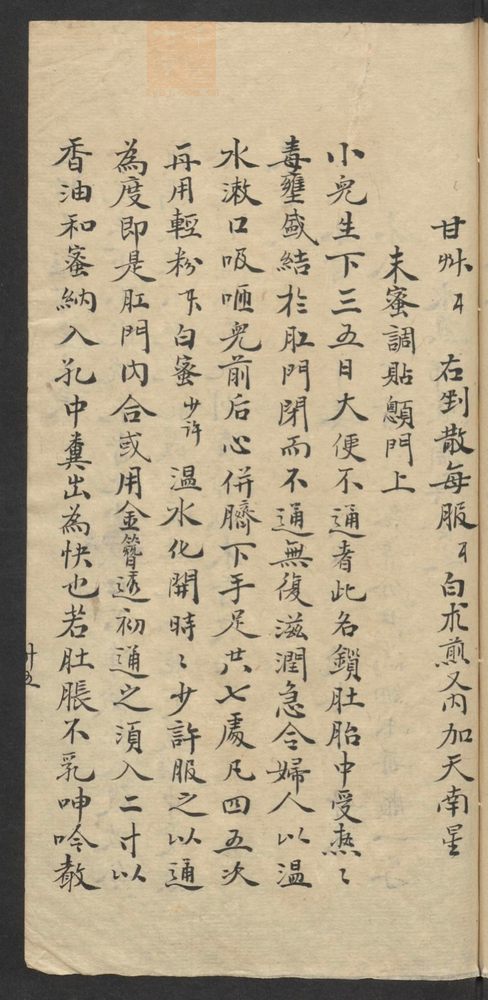 甘艸 右剉散每服 白朮煎又內加天南星
末蜜調貼顖門上
小兒生下三五日大便不通者此名鎖肚胎中受熱〻
毒壅盛結於肛門閉而不通無復滋潤急令婦人以溫
水漱口吸咂兒前后心併臍下手足共七處凡四五次
再用輕粉 白蜜少許溫水化開時〻少許服之以通
為度即是肛門內合或用金簪透初通之須入二寸以
香油和蜜納入孔中糞出為快也若肚脹不乳呻吟
廿五